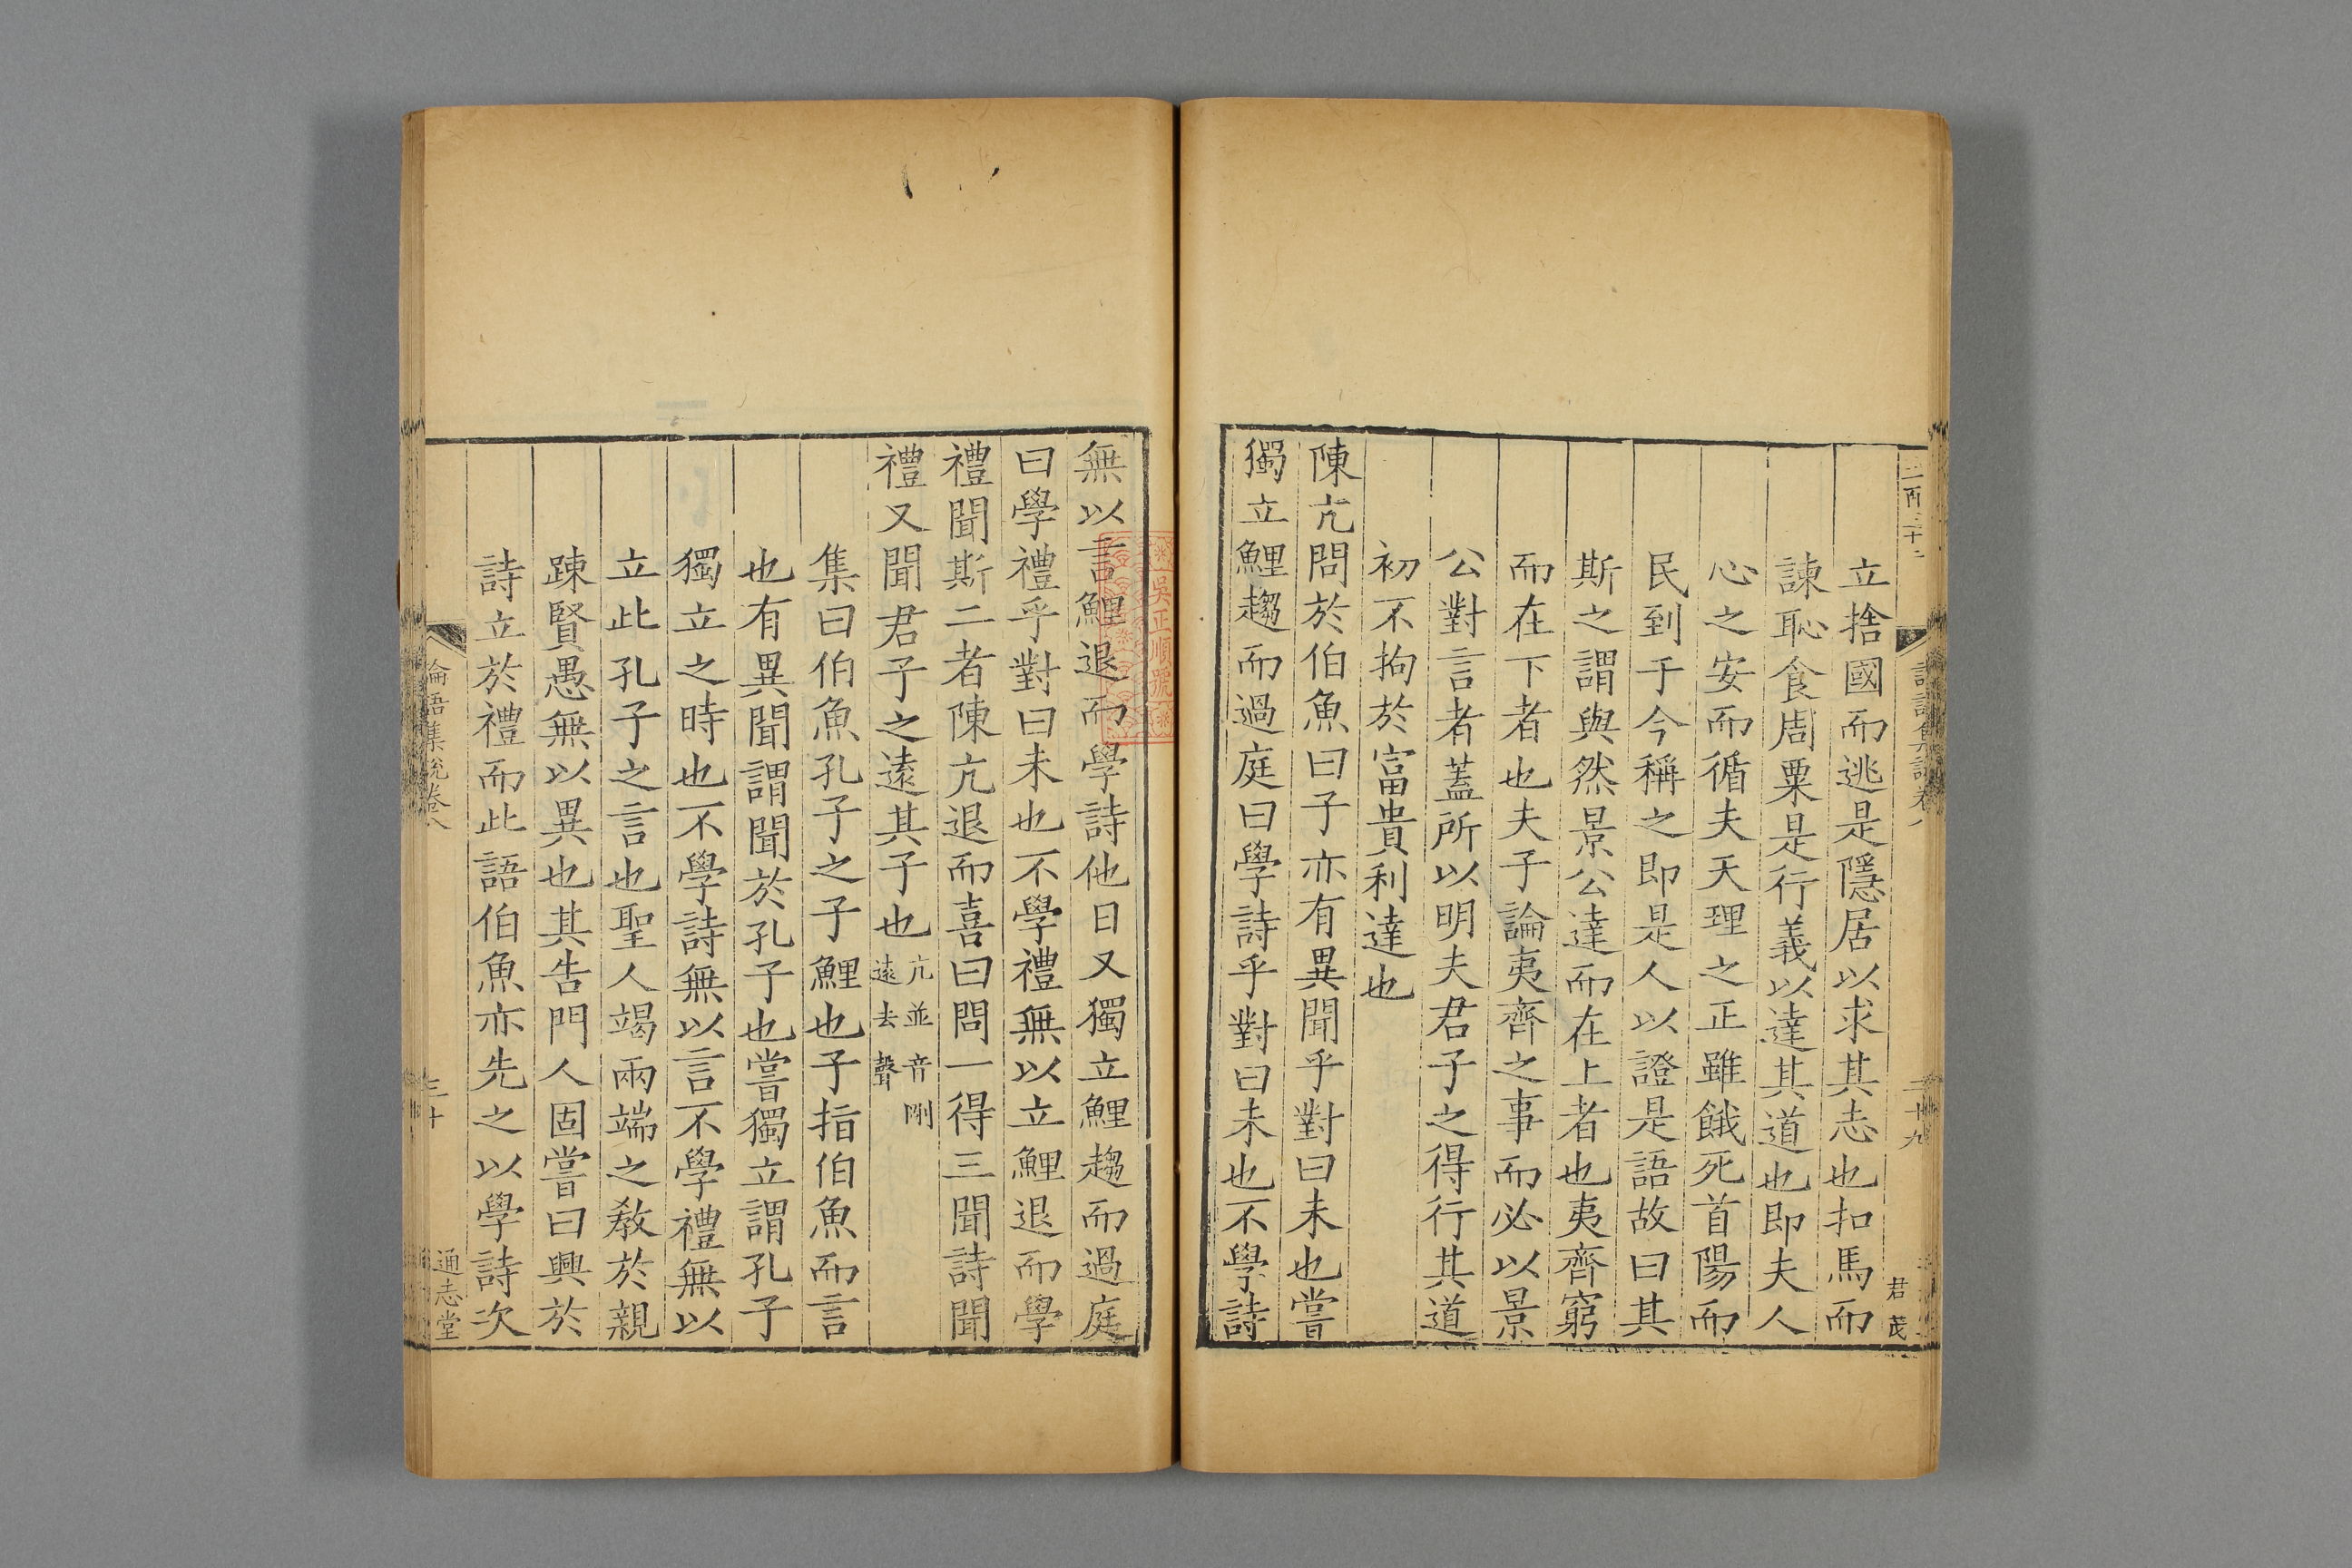 立捨國而逃是隱居以求其志也扣馬而
諫恥食周粟是行義以達其道也即夫人
心之安而循夫天理之正雖餓死首陽而
民到于今稱之即是人以證是語故曰其
斯之謂與然景公達而在上者也夷齊窮
而在下者也夫子論夷齊之事而必以景
公對言者蓋所以明夫君子之得行其道
初不拘於富貴利達也
陳亢問於伯魚曰子亦有異聞乎對曰未也嘗
獨立鯉趨而過庭曰學詩乎對曰未也不學詩
二十九
君茂
無以言鯉退而學詩他日又獨立鯉趨而過庭
曰學禮乎對曰未也不學禮無以立鯉退而學
禮聞斯二者陳亢退而喜曰問一得三聞詩聞
禮又聞君子之遠其子也
亢並音剛
遠去聲
集曰伯魚孔子之子鯉也子指伯魚而言
也有異聞謂聞於孔子也嘗獨立謂孔子
獨立之時也不學詩無以言不學禮無以
立此孔子之言也聖人竭兩端之教於親
踈賢愚無以異也其告門人固嘗曰興於
詩立於禮而此語伯魚亦先之以學詩次
論語集說卷八
三十
通志堂
吳正順號